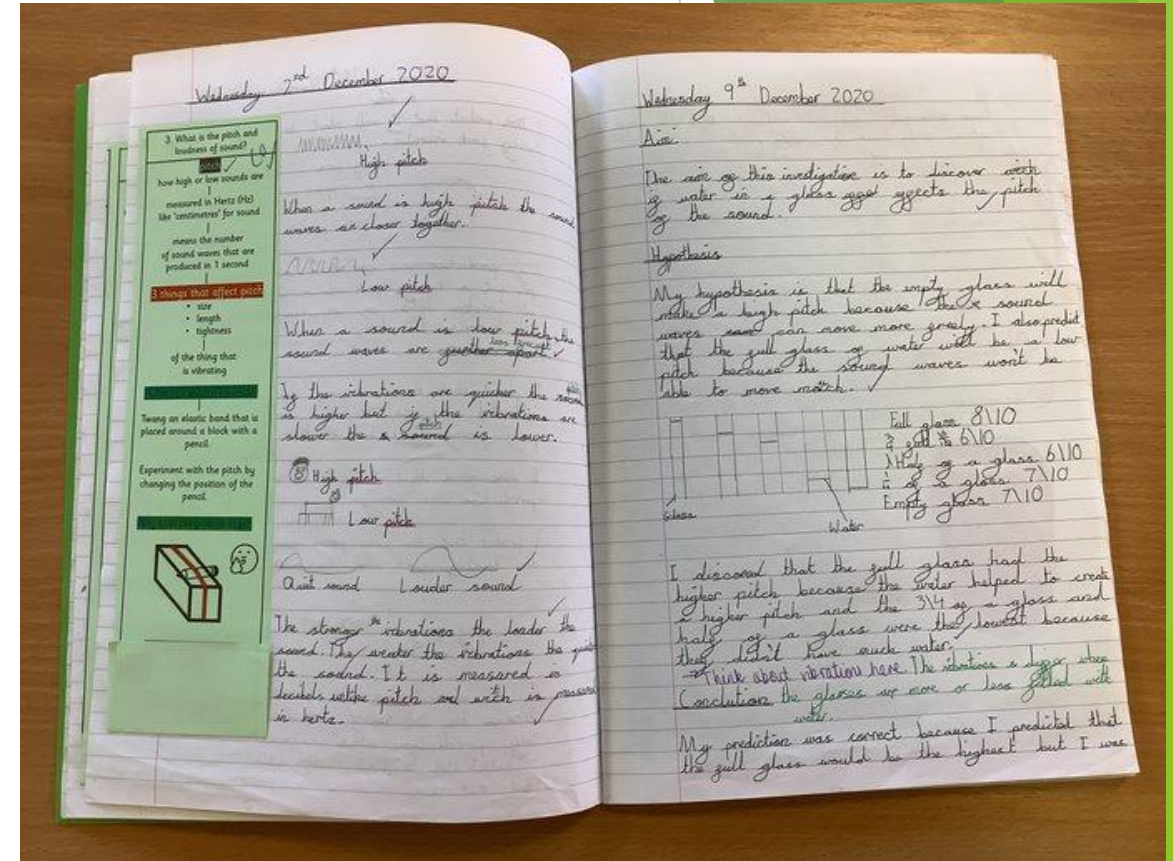 Wednesday 2nd December 2020
3. What is the pitch and
loudness of sound?
pitch
how high or low sounds are
measured in Hertz (Hz)
like 'centimetres' for sound
means the number
of sound waves that are
produced in 1 second
3 things that affect pitch
• size
• length
• tightness
of the thing that
is vibrating
Twang an elastic band that is
placed around a block with a
pencil.
Experiment with the pitch by
changing the position of the
pencil.
High pitch
When a sound is high pitch the sound
waves are closer together.
Low pitch
When a sound is low pitch the
sound waves are further apart.
If the vibrations are quicker the sound
is higher but if the vibrations are
slower the sound is lower.
High pitch
Low pitch
Quiet sound Louder sound
The stronger the vibrations the louder the
sound. The weaker the vibrations the
the sound. It is measured in
decibels unlike pitch wich is measured
in hertz.
Wednesday 9th December 2020
Aim
The aim of this investigation is to discover
if water in a glass effects the pitch
of the sound.
Hypothesis
My hypothesis is that the empty glass will
make a high pitch because the sound
waves can move more freely. I also predict
that the full glass of water will be a low
pitch because the sound waves won't be
able to move
Full glass 8\10
3/4 full 6\10
Half of a glass 6\10
of a glass 7\10
Empty glass 7\10
Glass
Water
I discoverd that the full glass had the
higher pitch because the water helped to create
a higher pitch and the 3\4 of a glass and
half of a glass were the lowest because
they didn't have much water.
Think about vibrations here. The vibrations is when
Conclution the glasses are more or less filled with
water.
My prediction was correct because I predicted that
the full glass would be the highest but I was